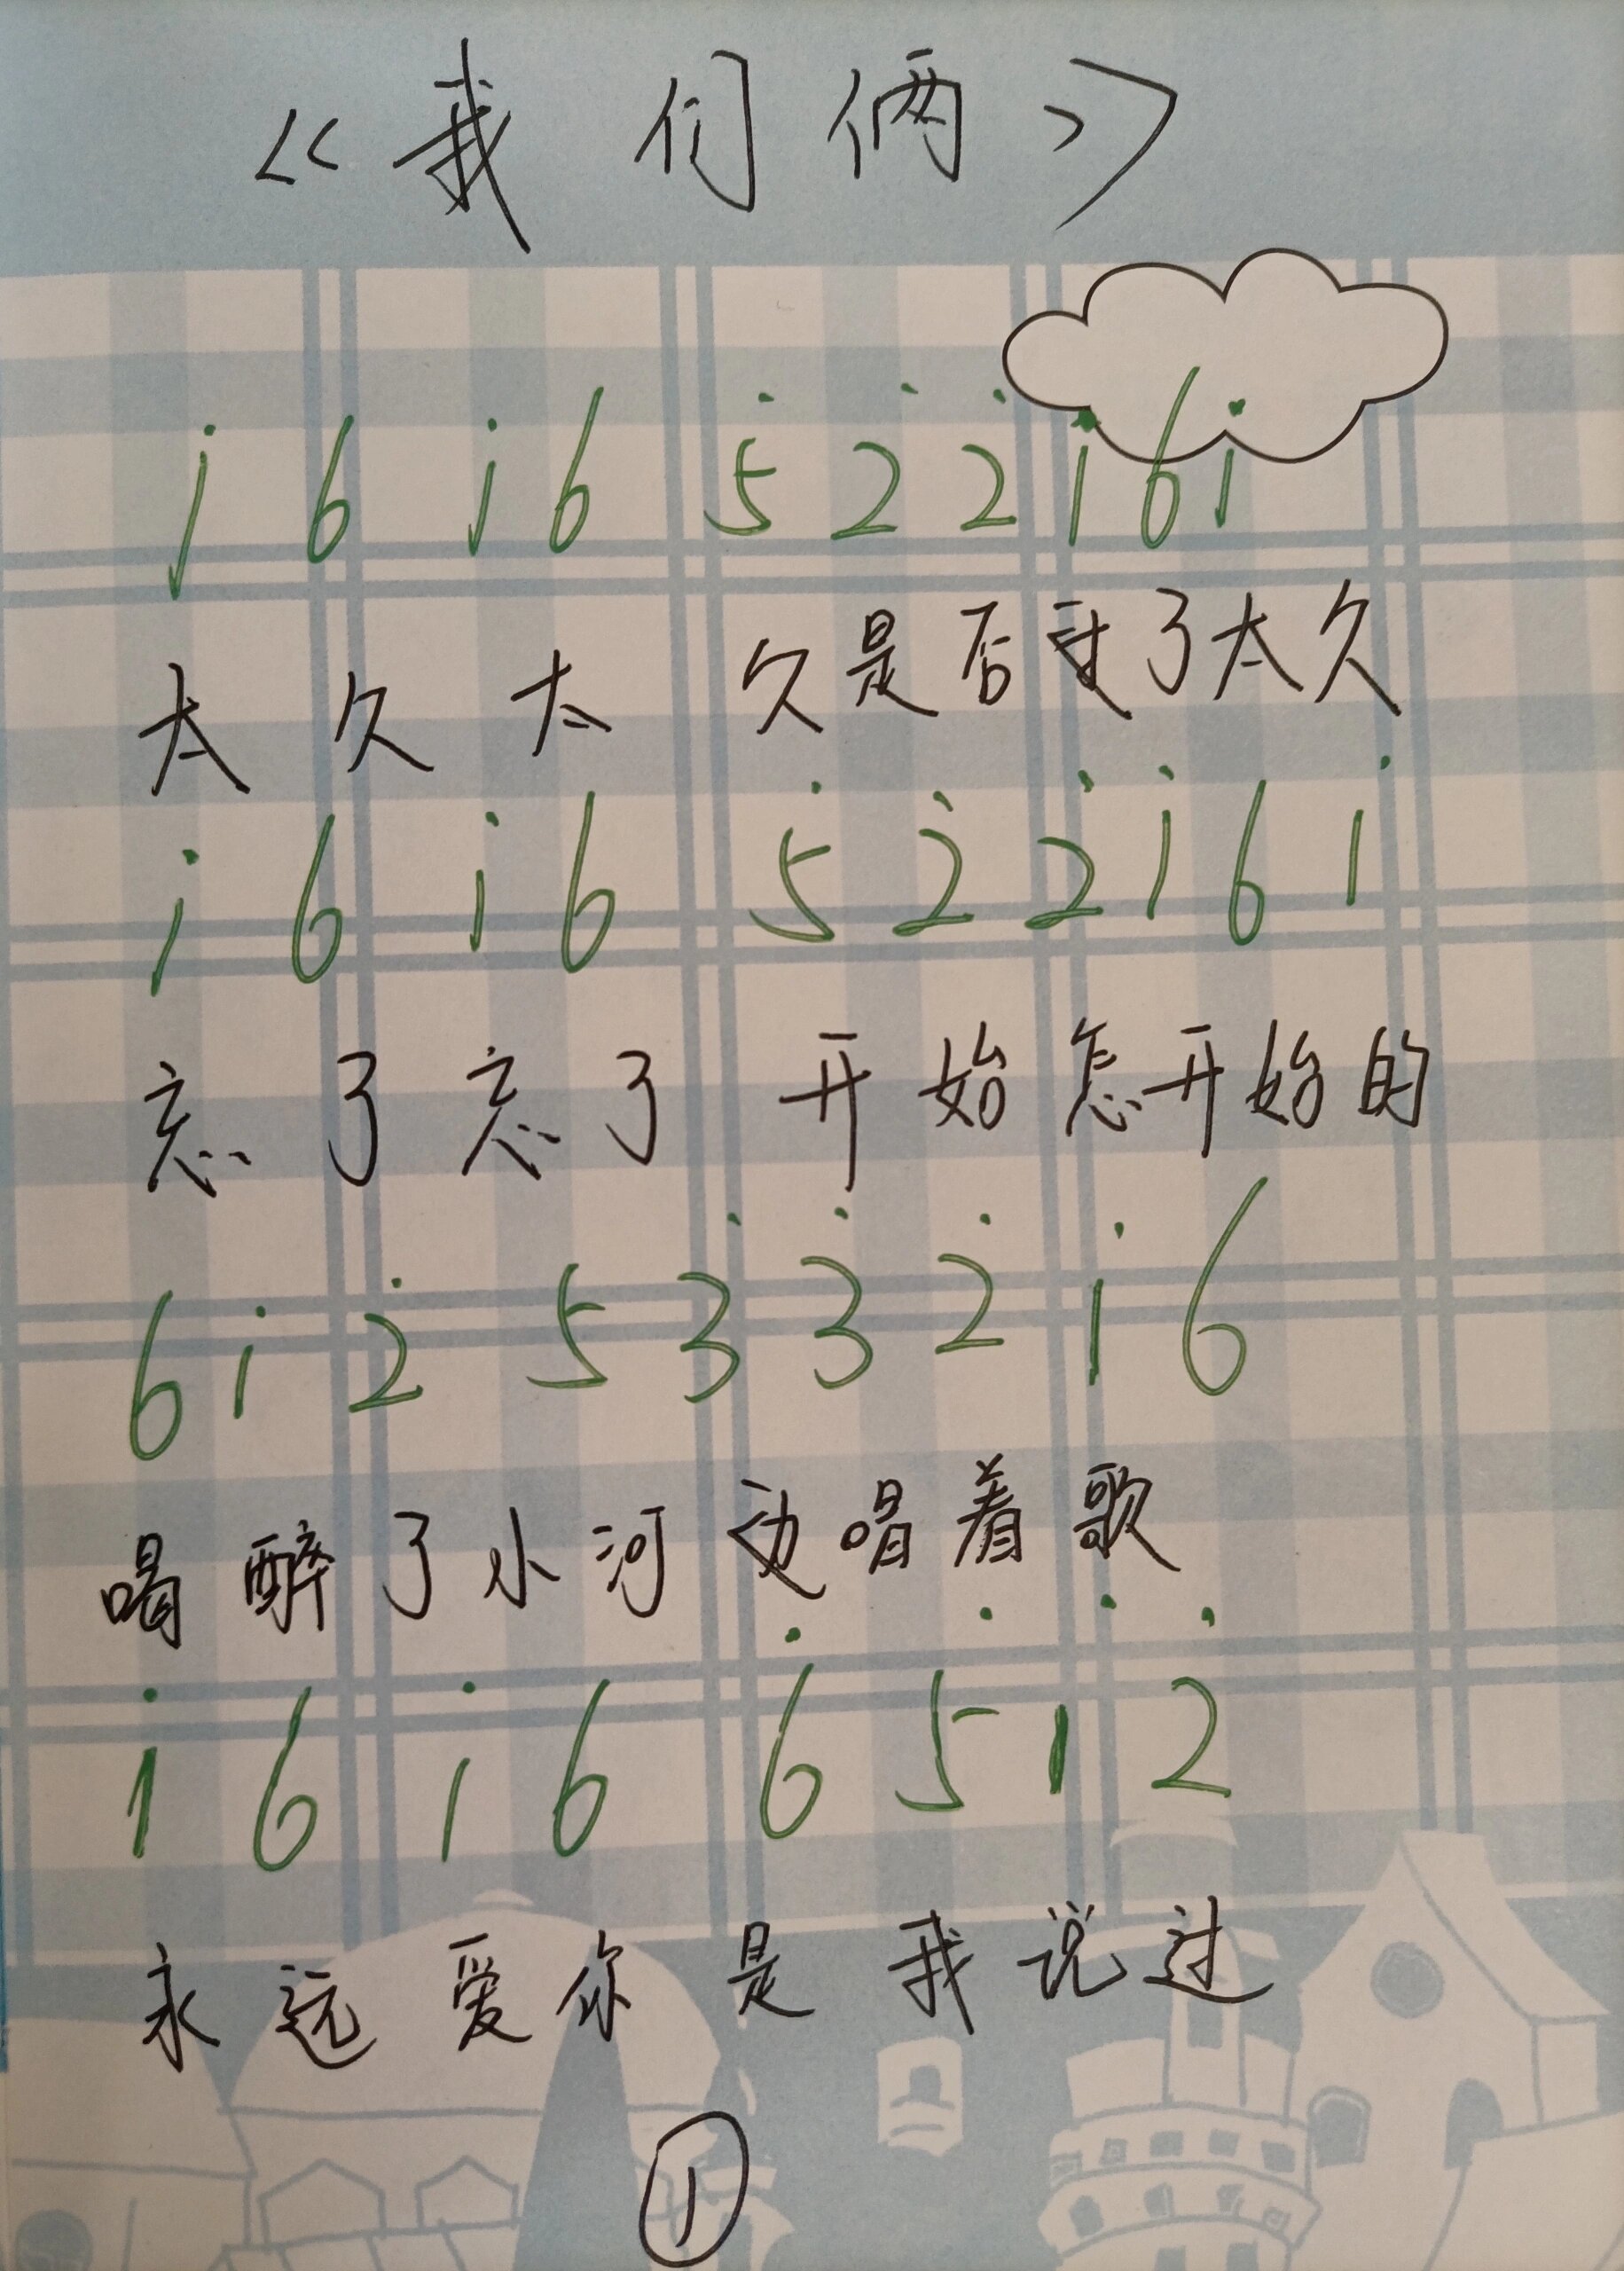 《我们俩》
i 6 i 6 5̇ 2̇ 2̇ i 6 i
太久太久是否过了太久
i 6 i 6 5̇ 2̇ 2̇ i 6 i
忘了忘了开始怎开始的
6 i 2̇ 5 3̇ 3̇ 2̇ i 6
喝醉了小河边唱着歌
i 6 i 6 6̇ 5̇ i 2̇
永远爱你是我说过
①